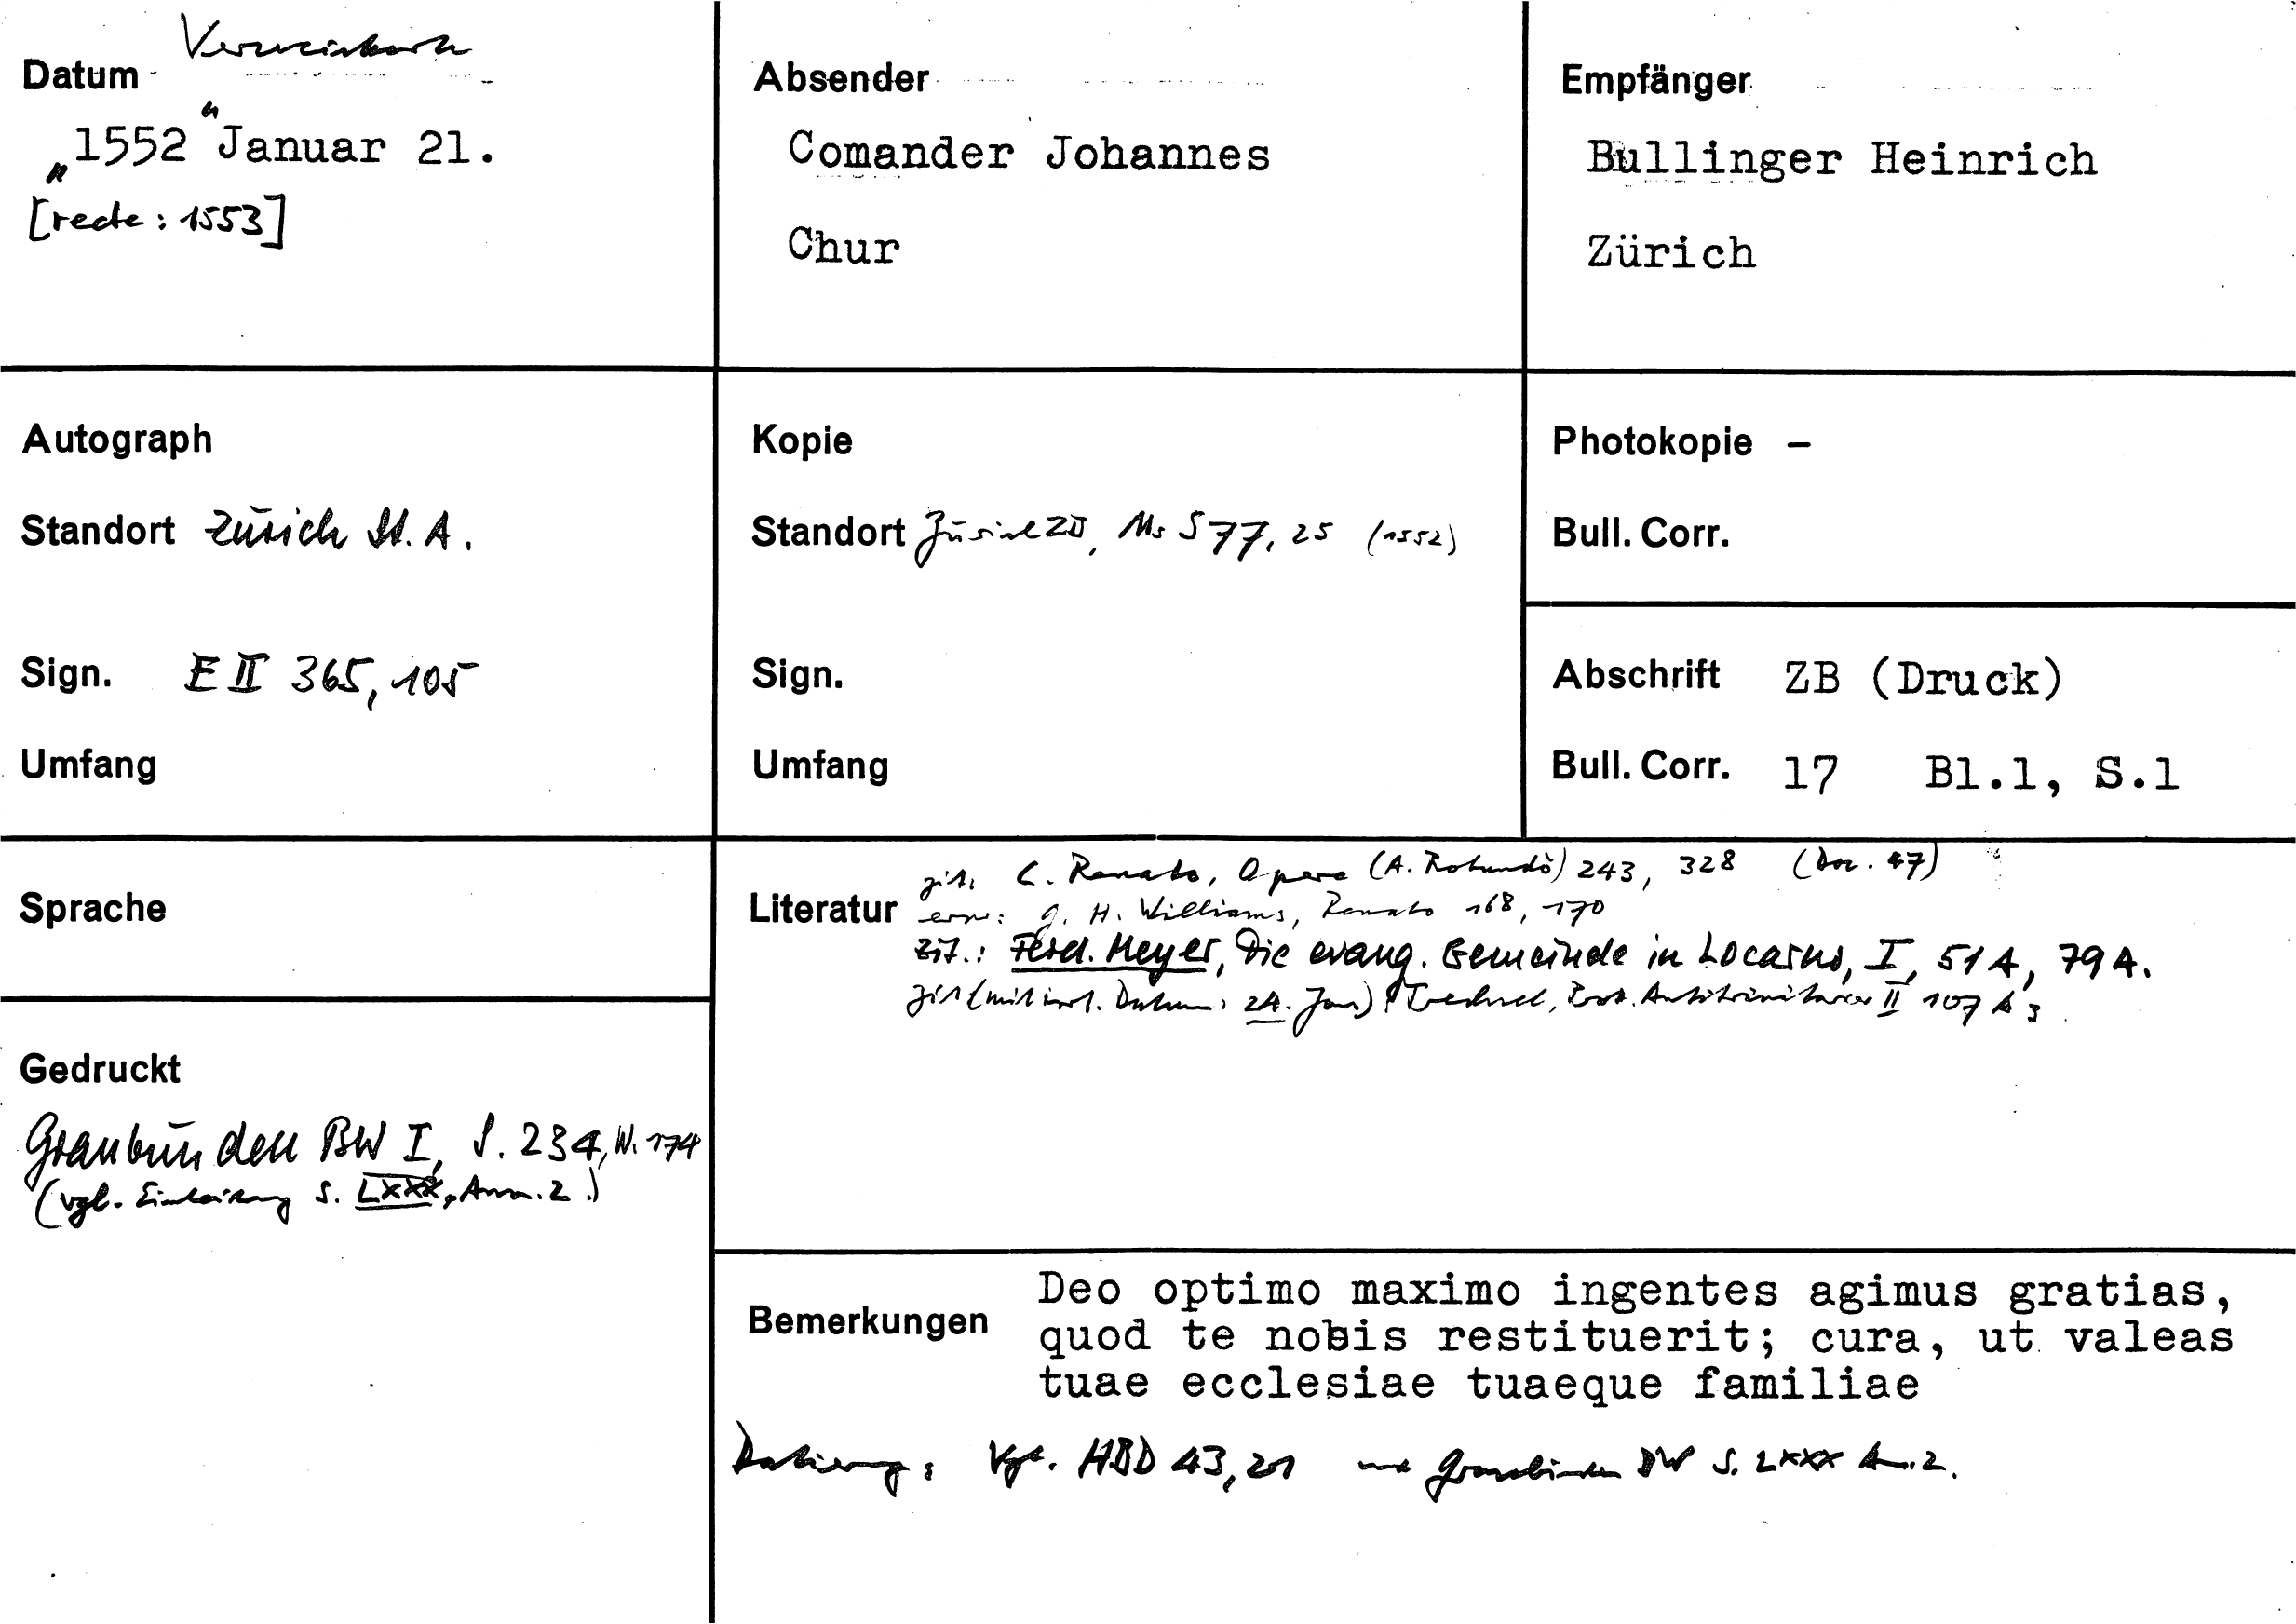 Verweiskarte
Datum
"1552" Januar 21.
[recte: 1553]
Absender
Comander Johannes
Chur
Empfänger
Bullinger Heinrich
Zürich
Autograph
Standort Zürich St. A.
Sign. E II 365, 105
Umfang
Kopie
Standort Zürich ZB, Ms S 77, 25 (1552)
Sign.
Umfang
Photokopie –
Bull. Corr.
Abschrift ZB (Druck)
Bull. Corr. 17 Bl.1, S.1
Sprache
Gedruckt
Graubünden BW I, S. 234, N. 174
(vgl. Einleitung S. LXXX, Anm. 2.)
zit. C. Renato, Opere (A. Rotondò) 243, 328 (Doc. 47)
Literatur erw: G. H. Williams, Renato 168, 170
zit.: Ferd. Meyer, Die evang. Gemeinde in Locarno, I, 51 A, 79 A.
zit (mit irrt. Datum: 24. Jan.) Trechsel, Prot. Antitrinitarier II 107 A 3
Bemerkungen
Deo optimo maximo ingentes agimus gratias,
quod te nobis restituerit; cura, ut valeas
tuae ecclesiae tuaeque familiae
Datierung: Vgl. HBD 43, 21 und Graubünden BW S. LXXX Anm. 2.